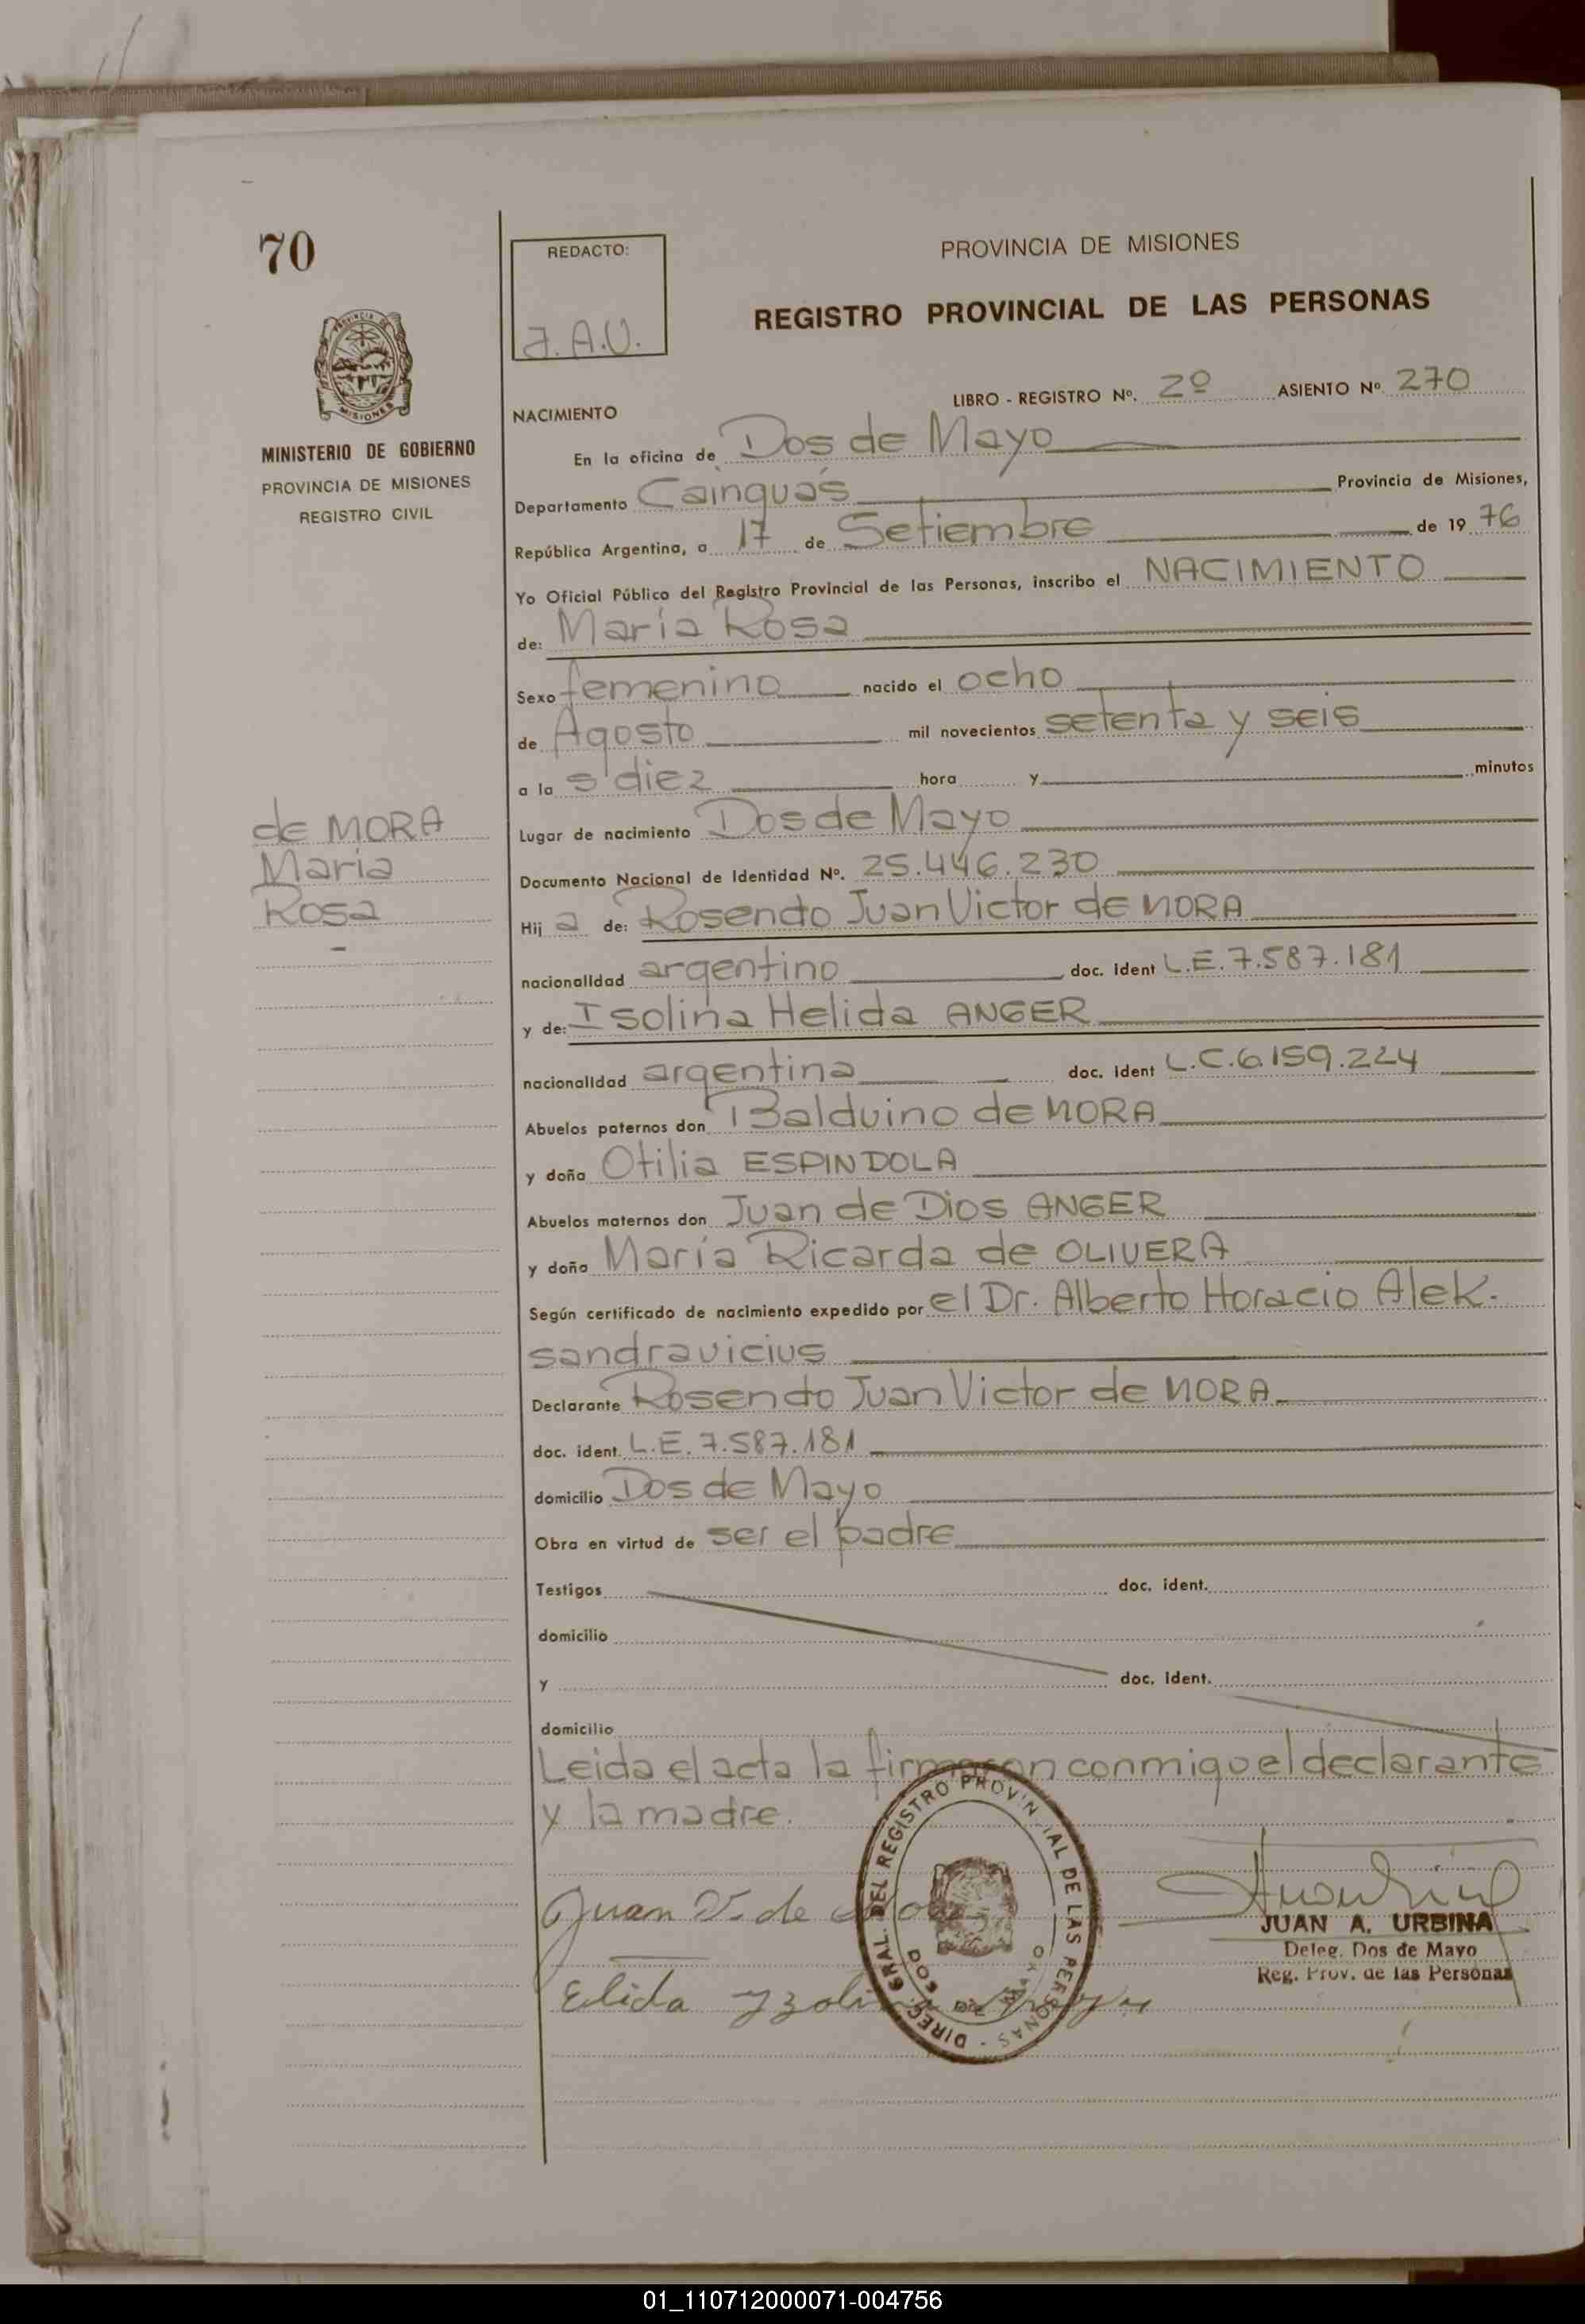 70
REDACTO:
J.A.U.
PROVINCIA DE MISIONES
REGISTRO PROVINCIAL DE LAS PERSONAS
PROVINCIA DE
MISIONES
MINISTERIO DE GOBIERNO
PROVINCIA DE MISIONES
REGISTRO CIVIL
LIBRO - REGISTRO Nº. 2º ASIENTO Nº 270
NACIMIENTO
En la oficina de Dos de Mayo
Departamento Cainguás Provincia de Misiones,
República Argentina, a 17 de Setiembre de 19 76
Yo Oficial Público del Registro Provincial de las Personas, inscribo el NACIMIENTO
de: María Rosa
Sexo femenino nacido el ocho
de Agosto mil novecientos setenta y seis
a la s diez hora y minutos
Lugar de nacimiento Dos de Mayo
de MORA
Maria
Rosa
Documento Nacional de Identidad Nº. 25.446.230
Hij a de: Rosendo Juan Victor de MORA
nacionalidad argentino doc. ident L.E. 7.587.181
y de: Isolina Helida ANGER
nacionalidad argentina doc. ident L.C. 6.159.224
Abuelos paternos don Balduino de MORA
y doña Otilia ESPINDOLA
Abuelos maternos don Juan de Dios ANGER
y doña María Ricarda de OLIVERA
Según certificado de nacimiento expedido por el Dr. Alberto Horacio Alek.
sandravicius
Declarante Rosendo Juan Victor de MORA
doc. ident. L.E. 7.587.181
domicilio Dos de Mayo
Obra en virtud de ser el padre
Testigos doc. ident.
domicilio
y doc. ident.
domicilio
Leida el acta la firmaron conmigo el declarante
y la madre.
DIREC. GRAL. DEL REGISTRO PROVINCIAL DE LAS PERSONAS
DOS DE MAYO
Juan V. de
JUAN A. URBINA
Deleg. Dos de Mayo
Reg. Prov. de las Personas
Elida
01_110712000071-004756